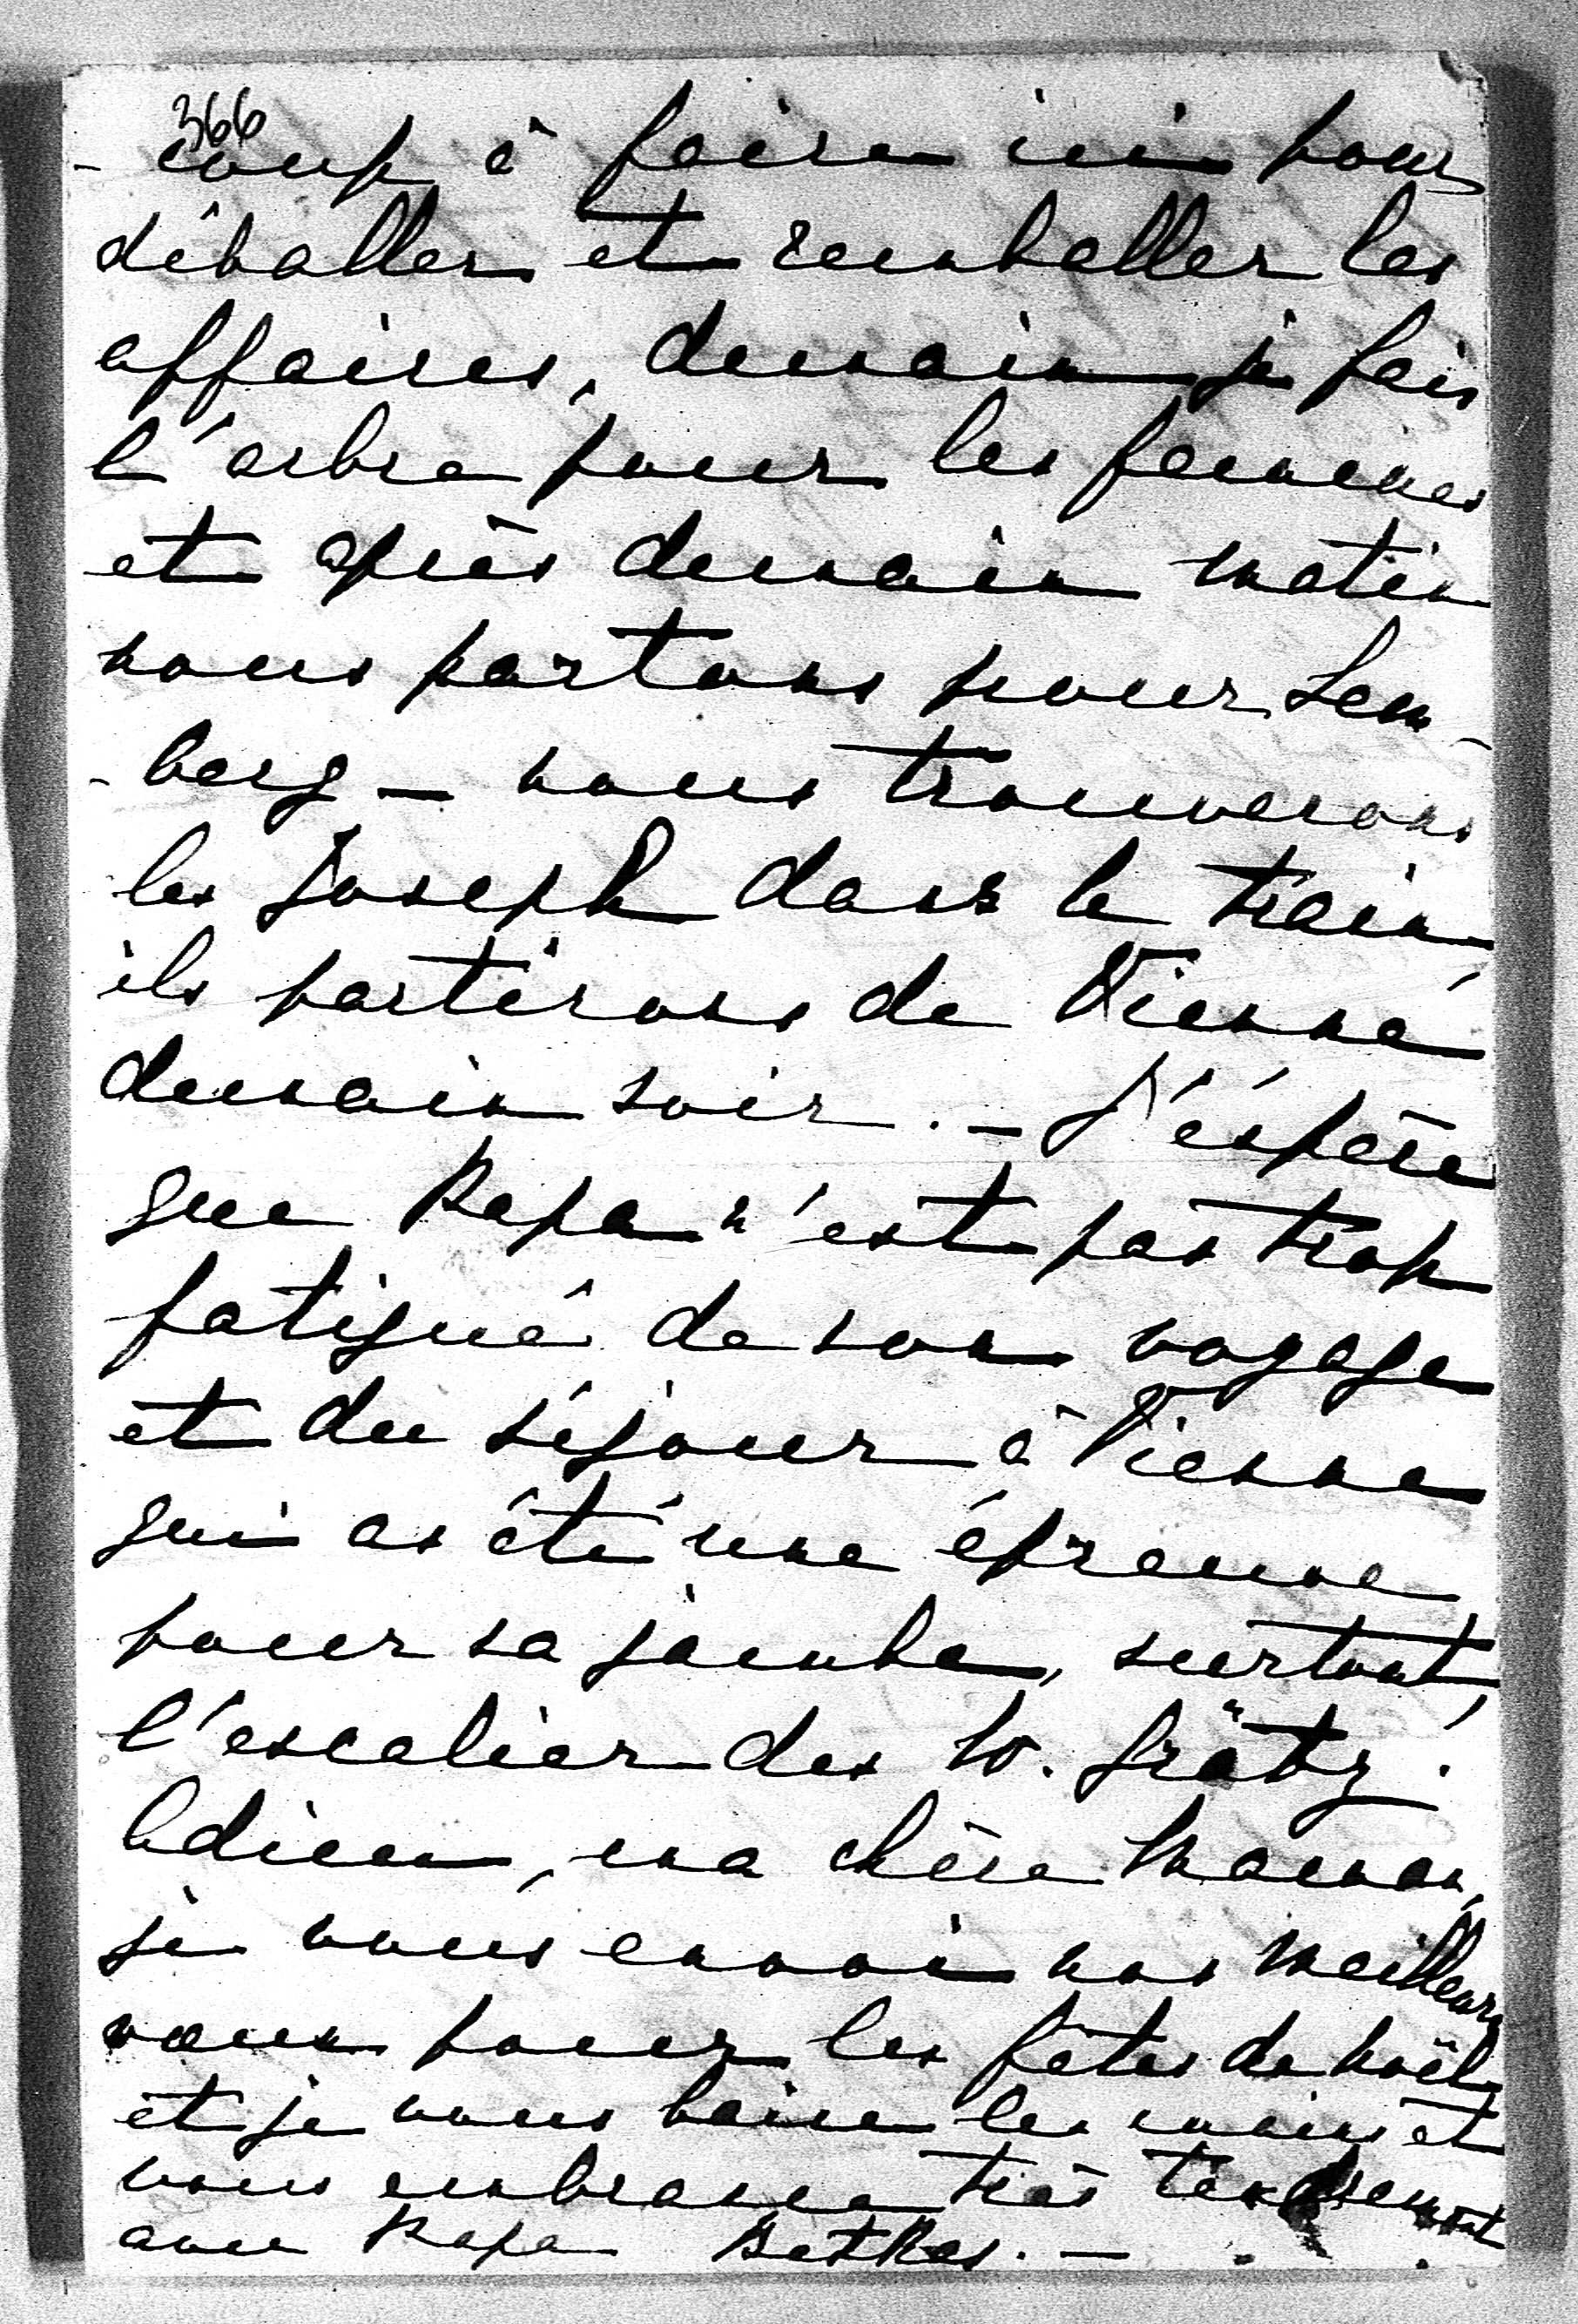 366
- coup à faire ici pour
déballer et remballer les
affaires, demain je fais
l'arbre pour les femmes
et après demain matin
nous partons pour Lem-
-berg - nous trouverons
les Joseph dans le train,
ils partirons de Vienne
demain soir. - J'éspère
que Papa n'est pas trop
fatigué de son voyage
et du séjour à Vienne
qui as été une épreuve
pour sa jambe, surtout,
l'escalier des W. Grätz.
Adieu, ma chère Maman,
je vous envoie nos meilleurs
vœux pour les fêtes de Noël
et je vous baise les mains et
vous embrasse très tendrement
avec Papa